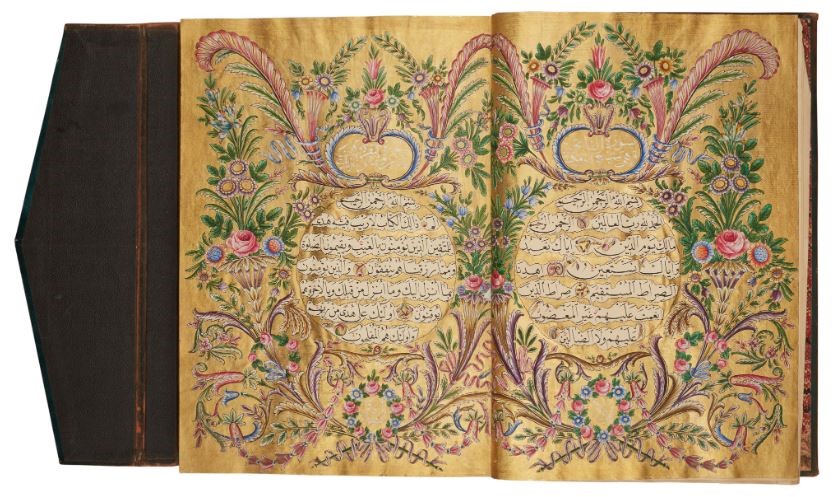 بسم الله الرحمن الرحيم
الحمد لله رب العالمين الرحمن الرحيم
ملك يوم الدين اياك نعبد
واياك نستعين اهدنا
الصراط المستقيم صراط الذين
انعمت عليهم غير المغضوب
عليهم ولا الضالين
بسم الله الرحمن الرحيم
الم ذلك الكتاب لا ريب فيه هدى
للمتقين الذين يؤمنون بالغيب ويقيمون الصلوة
ومما رزقناهم ينفقون والذين يؤمنون
بما انزل اليك وما انزل من قبلك وبالاخرة
هم يوقنون اولئك على هدى من ربهم
واولئك هم المفلحون